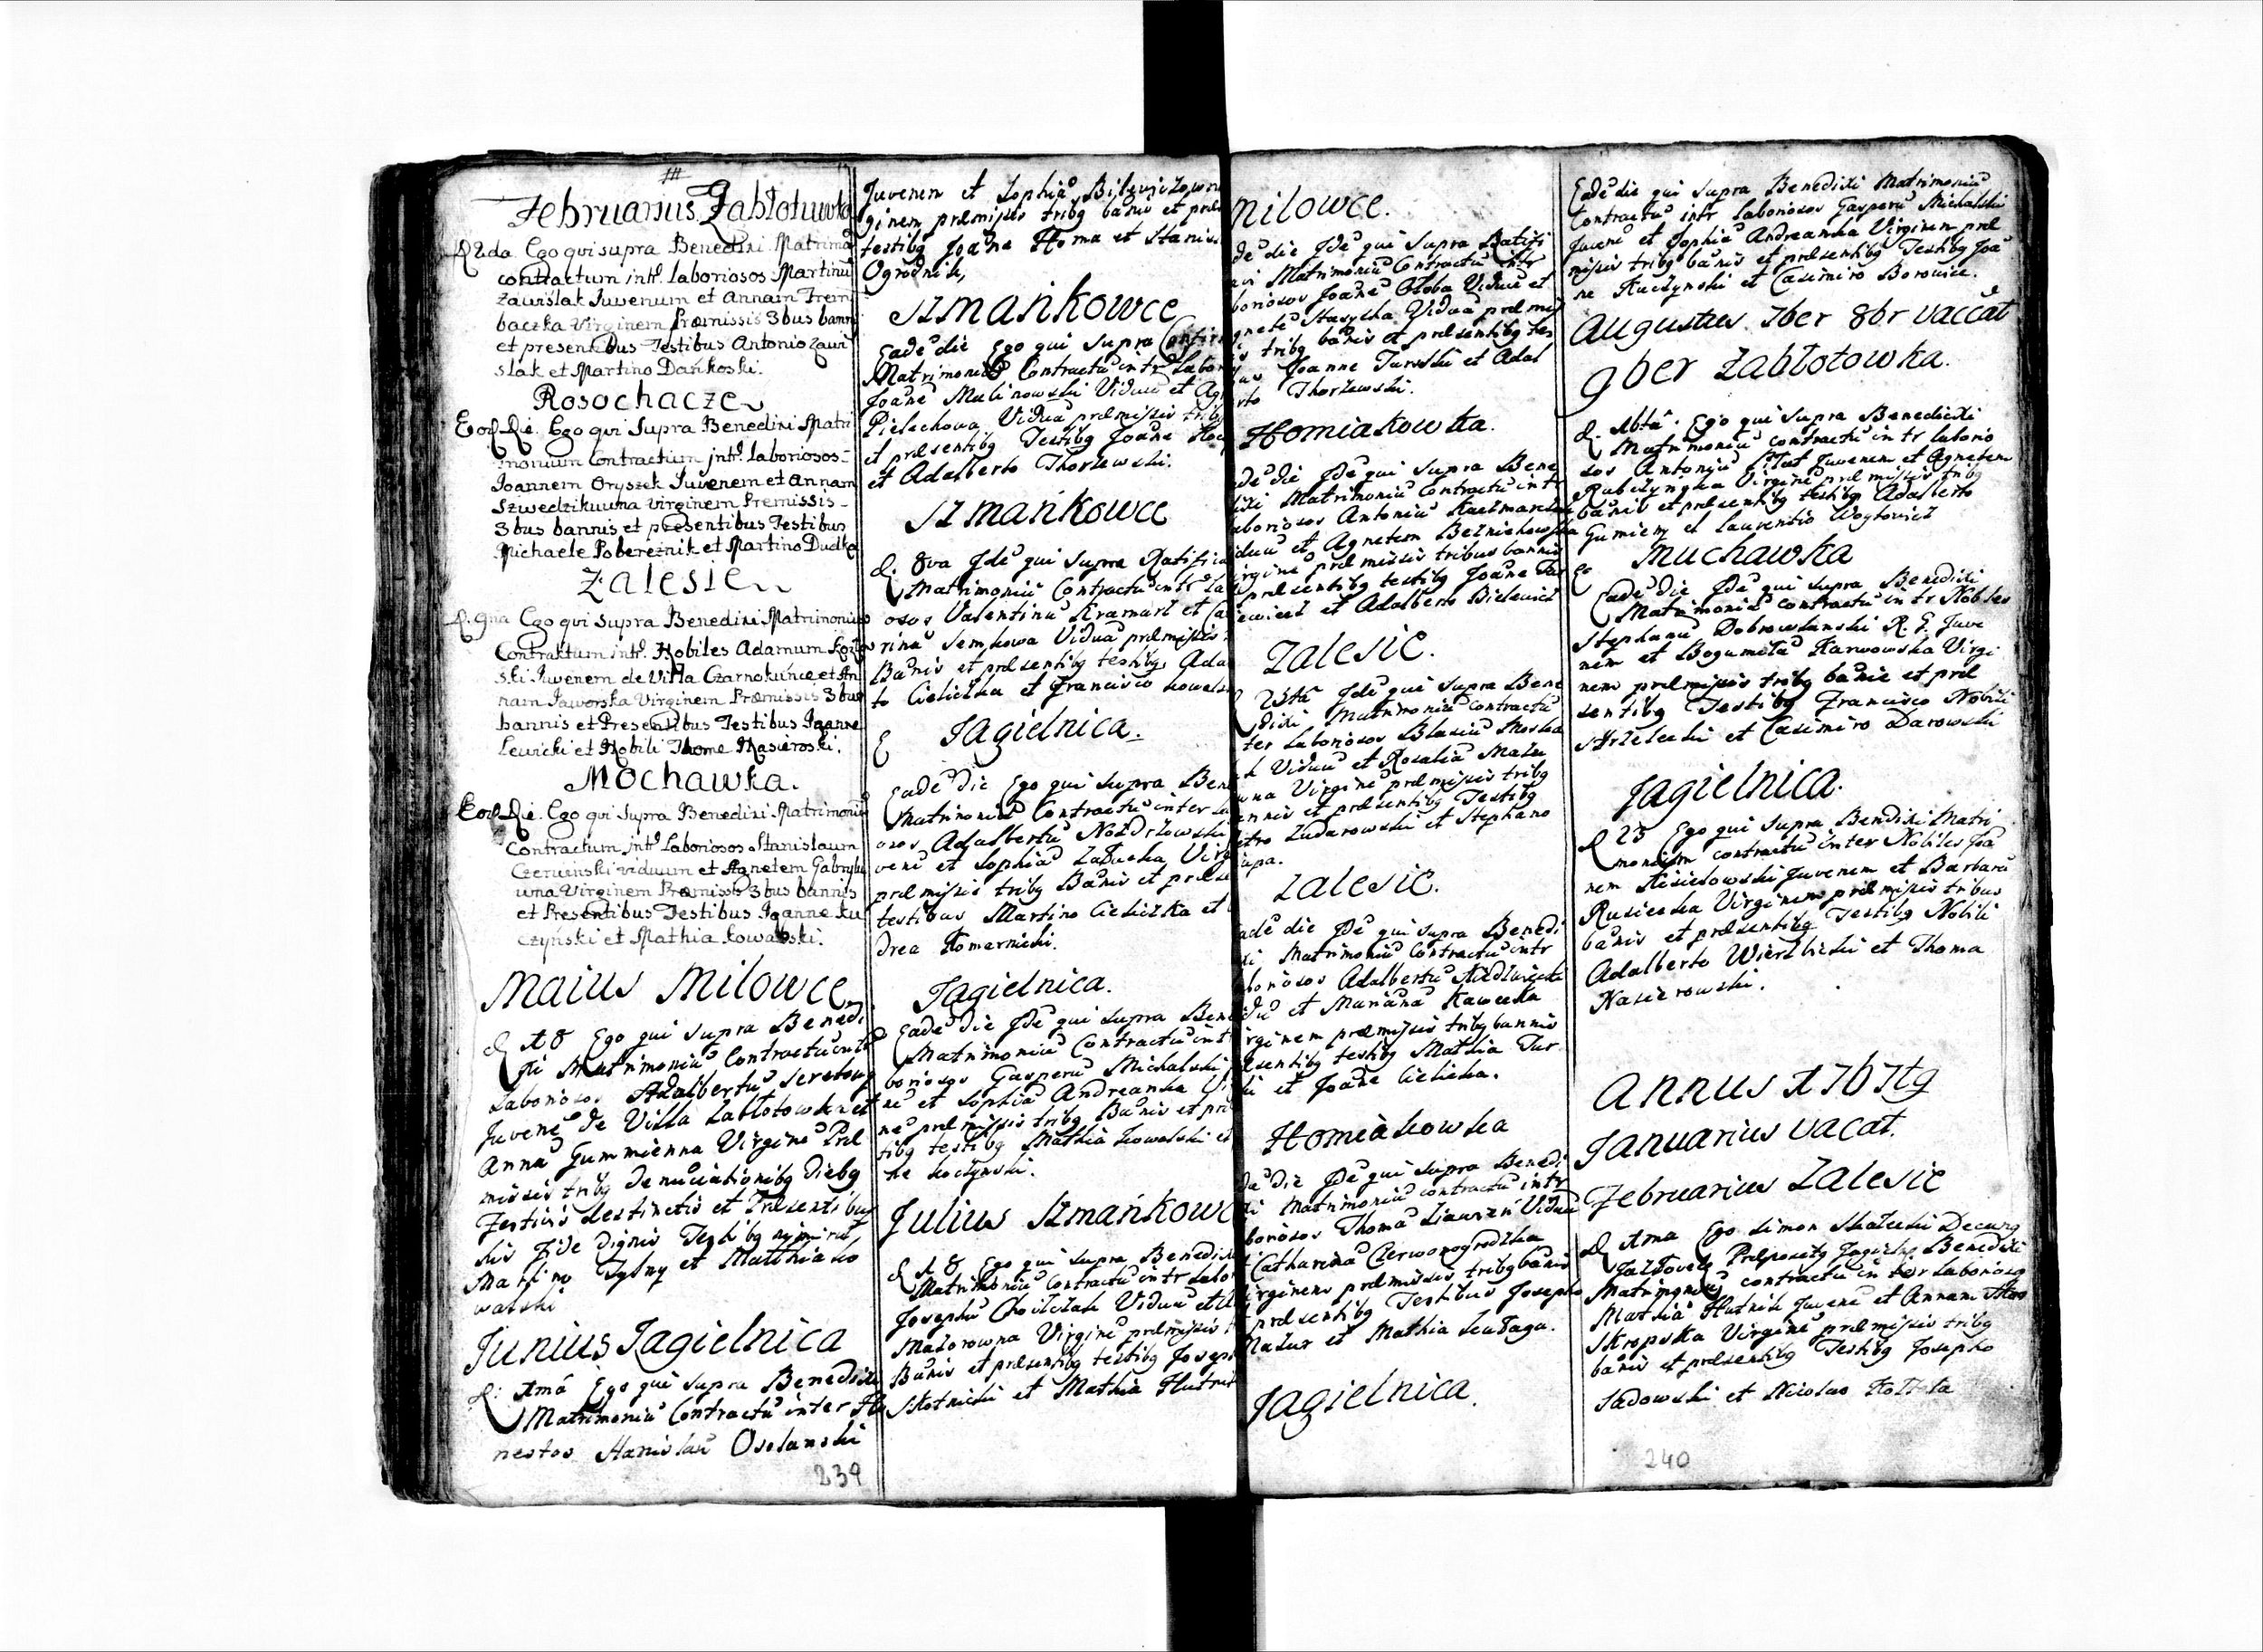 Februarius Zabłotuwka
D. 2da. Ego qvi supra Benedixi Matrimo
contractum intr. laboriosos Martinu
Zawislak Juvenum et Annam Trem
baczka Virginem Præmissis 3bus bann
et presentibus Testibus Antonio Zawi
slak et Martino Dańkoski.
Rosochacze
Eod. Die. Ego qvi Supra Benedixi Matri
monium Contractum intr. laboriosos
Joannem Oryszek Juvenem et Annam
Szwedzikuwna virginem Premissis
3bus bannis et presentibus Testibus
Michaele Pobereznik et Martino Dudka
Zalesie
D. 9na Ego qvi supra Benedixi Matrimoniu
Contraktum intr. Nobiles Adamum
ski Juvenem de Villa Czarnokunice et An
nam Jaworska Virginem Præmissis 3bus
bannis et Presentibus Testibus Joanne
Lewicki et Nobili Thome Nasieroski.
Mochawka.
Eod. Die. Ego qvi Supra Benedixi Matrimoniu
Contractum intr. Laboriosos Stanislaum
Czerwinski viduum et Agnetem Gabrylu
wna Virginem Præmissis 3bus bannis
et Presentibus Testibus Joanne Ku
czyński et Mathia Kowalski.
Maius Milowce
D 18 Ego qui supra Benedi
xi Matrimoniu Contractu intr
Laboriosos Adalbertu
Juvene de Villa Zabłotowka et
Anna Gummienna Virgine Præ
missis tribg denuciationibg diebg
Festivis destinctis et Præsentibus
his fide dignis Testibg nimiru
Martino Tylny et Matthia Ko
walski
Junius Jagielnica
D: 1ma Ego qui supra Benedixi
Matrimoniu Contractu inter Ho
nestos Stanislau Osolanski
239
Juvenem et Sophia
ginem præmissis tribg banis et præs
testibg Joane Homa et Stanis
Ogrodnik,
Szmańkowce
Eade die Ego qui supra
Matrimoniu Contractu intr Labor
Joane Malinowski Viduu et Ag
Pielechowa Vidua præmissis tribg
et præsentibg Testibg Joane
et Adalberto Thorzewski.
Szmańkowce
d. 8va Ide qui supra Ratifica
Matrimoniu Contractu intr La
osos Valentinu Kramarz et Ca
rina Semkowa Vidua præmissis
Banis et præsentibg testibg Ada
to Cieliczka et Francisco Kowals
Jagielnica.
Eade Die Ego qui supra Ben
Matrimoniu Contractu inter La
osos Adalbertu Nozdrzowski
vene et Sophia Virg
præmissis tribg Banis et præse
testibus Martino Cieliczka et
drea Komarnicki.
Jagielnica.
Eade die Ide qui supra Bene
Matrimoniu Contractu int
boriosos Gasperu Michalski
ne et Sophia Andreanka Vi
ne præmissis tribg Banis et præ
tibg testibg Mathia Kowalski et
ne Koczynski.
Julius Szmańkowc
D 18 Ego qui supra Benedixi
Matrimoniu Contractu intr Labo
Josephu Viduu et
Mazorowna Virgine præmissis
Banis et præsentibg testibg Joseph
Skotnicki et Mathia Hutnik
Milowce.
de die Ide qui supra Ratifi
Matrimoniu Contractu intr
boriosos Joane Viduu et
gnete Stasycha Vidua præmis
is tribg banis et præsentibg tes
Joanne Turwski et Adal
rto Thorzewski.
Homiakowka.
de die Ide qui supra Bene
dixi Matrimoniu Contractu intr
aboriosos Antoniu
iduu et Agnetem
irgine præmissis tribus bannis
præsentibg testibg Joane
et Adalberto Bielewicz
Zalesie.
D 23tia Ide qui supra Bene
dixi Matrimoniu Contractu
ter Laboriosos Blasiu
Viduu et Rosalia Mazu
wna Virgine præmissis tribg
annis et præsentibg Testibg
etro Zudarowski et Stephano
Zalesie.
ade die Ide qui supra Benedi
xi Matrimoniu Contractu intr
aboriosos Adalbertu
idu et Mariana Kawecka
irginem præmissis tribg bannis
æsentibg testibg Mathia Tur
ki et Joane Cielicka.
Homiakowka
de die Ide qui supra Benedi
xi Matrimoniu contractu intr
boriosos Thoma Viduu
Catharina Czerwonogrodzka
irginem præmissis tribg banis
præsentibg Testibus Josepho
Mazur et Mathia
Jagielnica.
Eade die qui supra Benedixi Matrimoniu
Contractu intr Laboriosos Gasperu Michalski
Juvene et Sophia Andreanka Virginem præ
missis tribg banis et præsentibg Testibg Joa
ne Kuczynski et Casimiro Borowiec.
Augustus 7ber 8br vaccat
9ber Zabłotowka.
d. Ego qui supra Benedixi
Matrimoniu contractu intr Laborio
sos Antoniu Juvenem et Agnetem
Virgine præmissis tribg
banis et præsentibg testibg Adalberto
Gumieny et Laurentio Woytowicz
Muchawka
Eade die Ide qui supra Benedixi
Matrimoniu contractu intr Nobiles
Stephanu Dobrowlanski R. G. Juve
nem et Bogumiła Karwowska Virgi
nem præmissis tribg banis et præ
sentibg Testibg Francisco Nobili
Strzelecki et Casimiro Darowski
Jagielnica.
D 25 Ego qui supra Bendixi Matri
monium contractu inter Nobiles Joa
nem Kisielowski Juvenem et Barbara
Rusiecka Virginem præmissis tribus
banis et præsentibg Testibg Nobili
Adalberto Wierzbicki et Thoma
Nasierowski.
Annus 1767tg
Januarius vacat.
Februarius Zalesie
D 1ma Ego Simon Skałecki Decang
Præpositg Jagielnc Benedixi
Matrimoniu contractu inter Laboriosg
Mathia Hutnik Juvene et Annam
Virgine præmissis tribg
banis et præsentibg Testibg Josepho
Sadowski et Nicolao
240